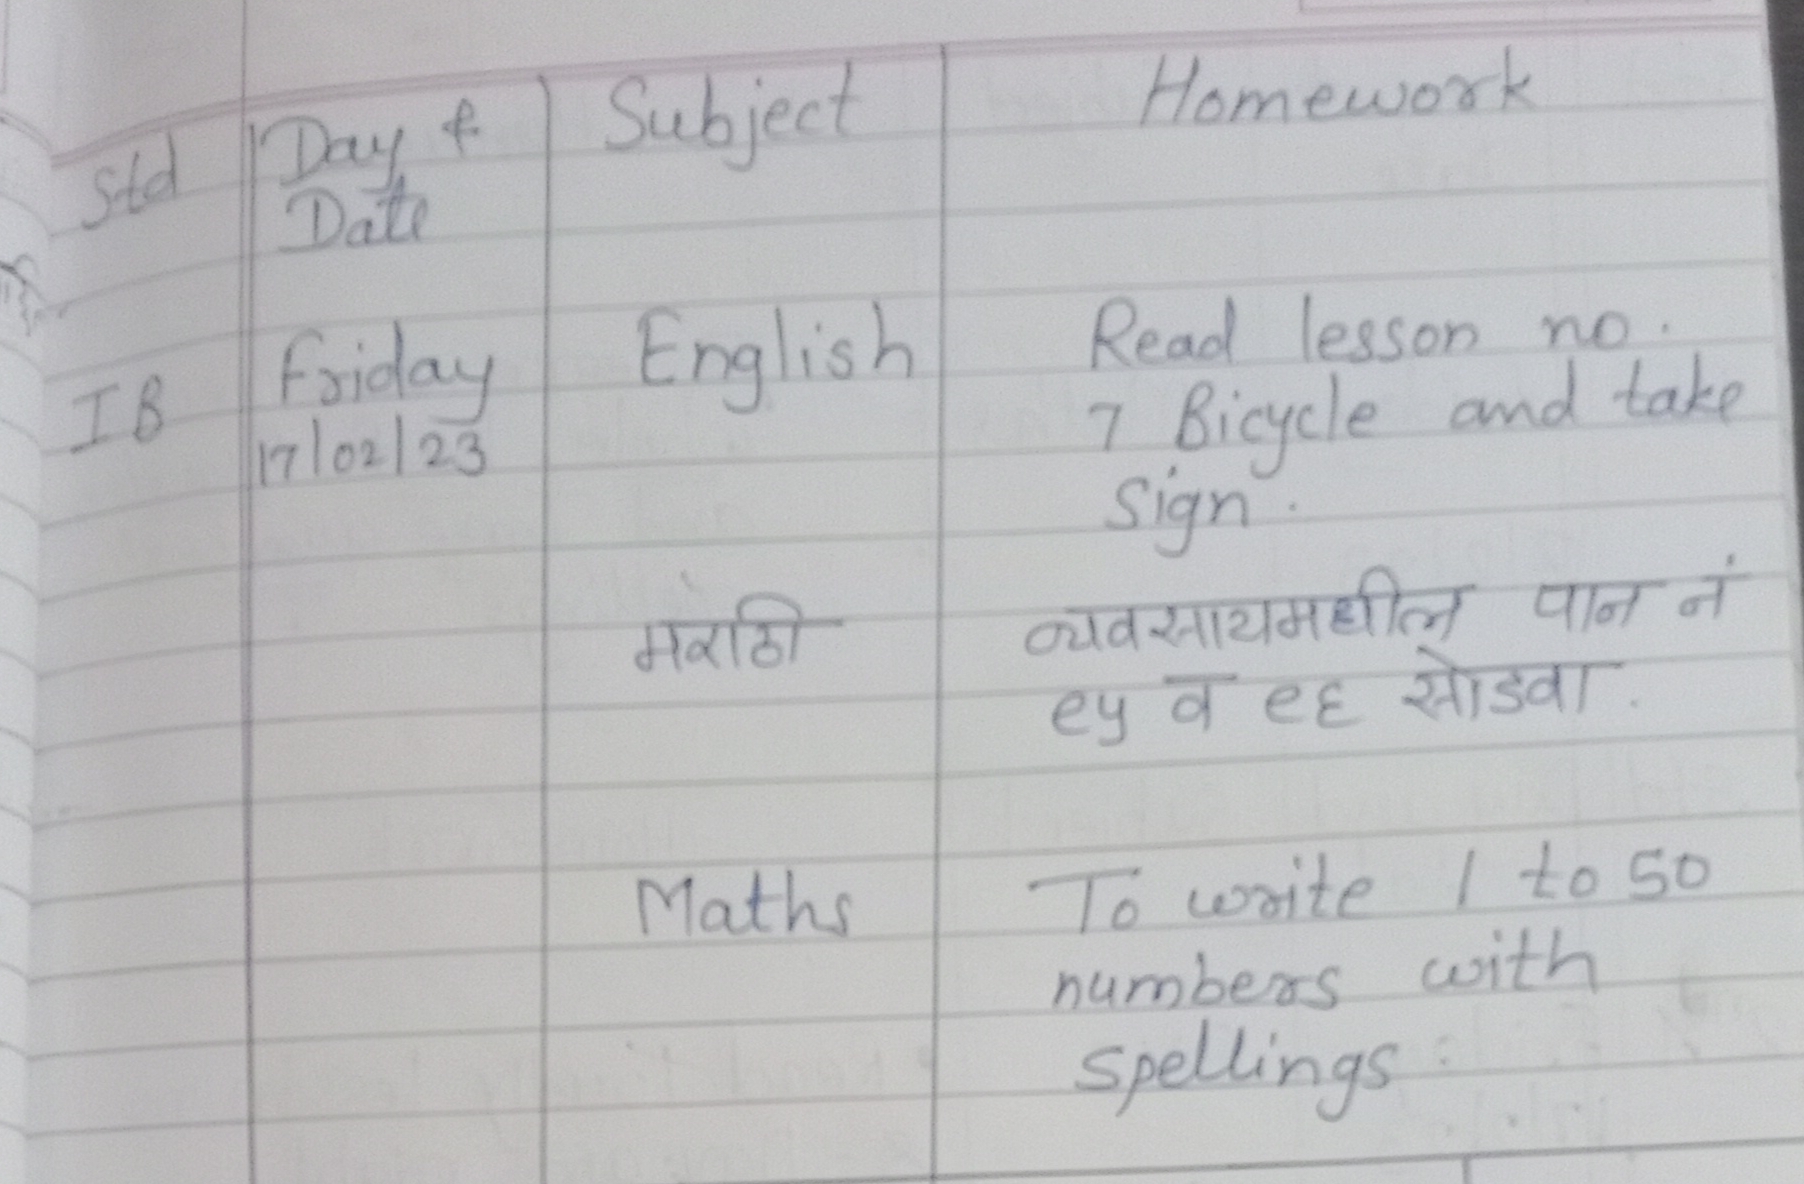 Std Day & Subject Homework
Date
IB Friday English Read lesson no.
17/02/23 7 Bicycle and take
sign.
मराठी व्यवसायमधील पान नं
९५ व ९६ सोडवा.
Maths To write 1 to 50
numbers with
spellings.